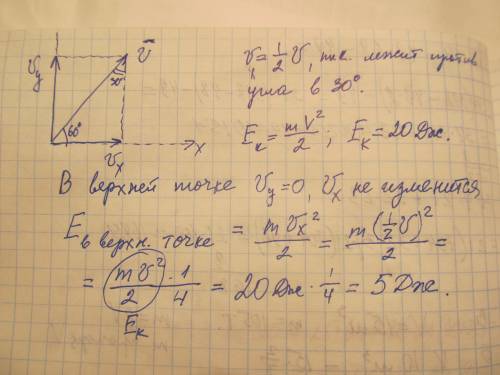 υy
υ̅
30°
60°
υx
x
υ = 1/2 υ, т.к. лежит против
x
угла в 30°.
Eк = mV²/2 ; Eк = 20 Дж.
В верхней точке υy = 0, υx не изменится
E в верхн. точке = mυx²/2 = m(1/2 υ)²/2 =
= mυ²/2 · 1/4 = 20 Дж · 1/4 = 5 Дж.
Eк